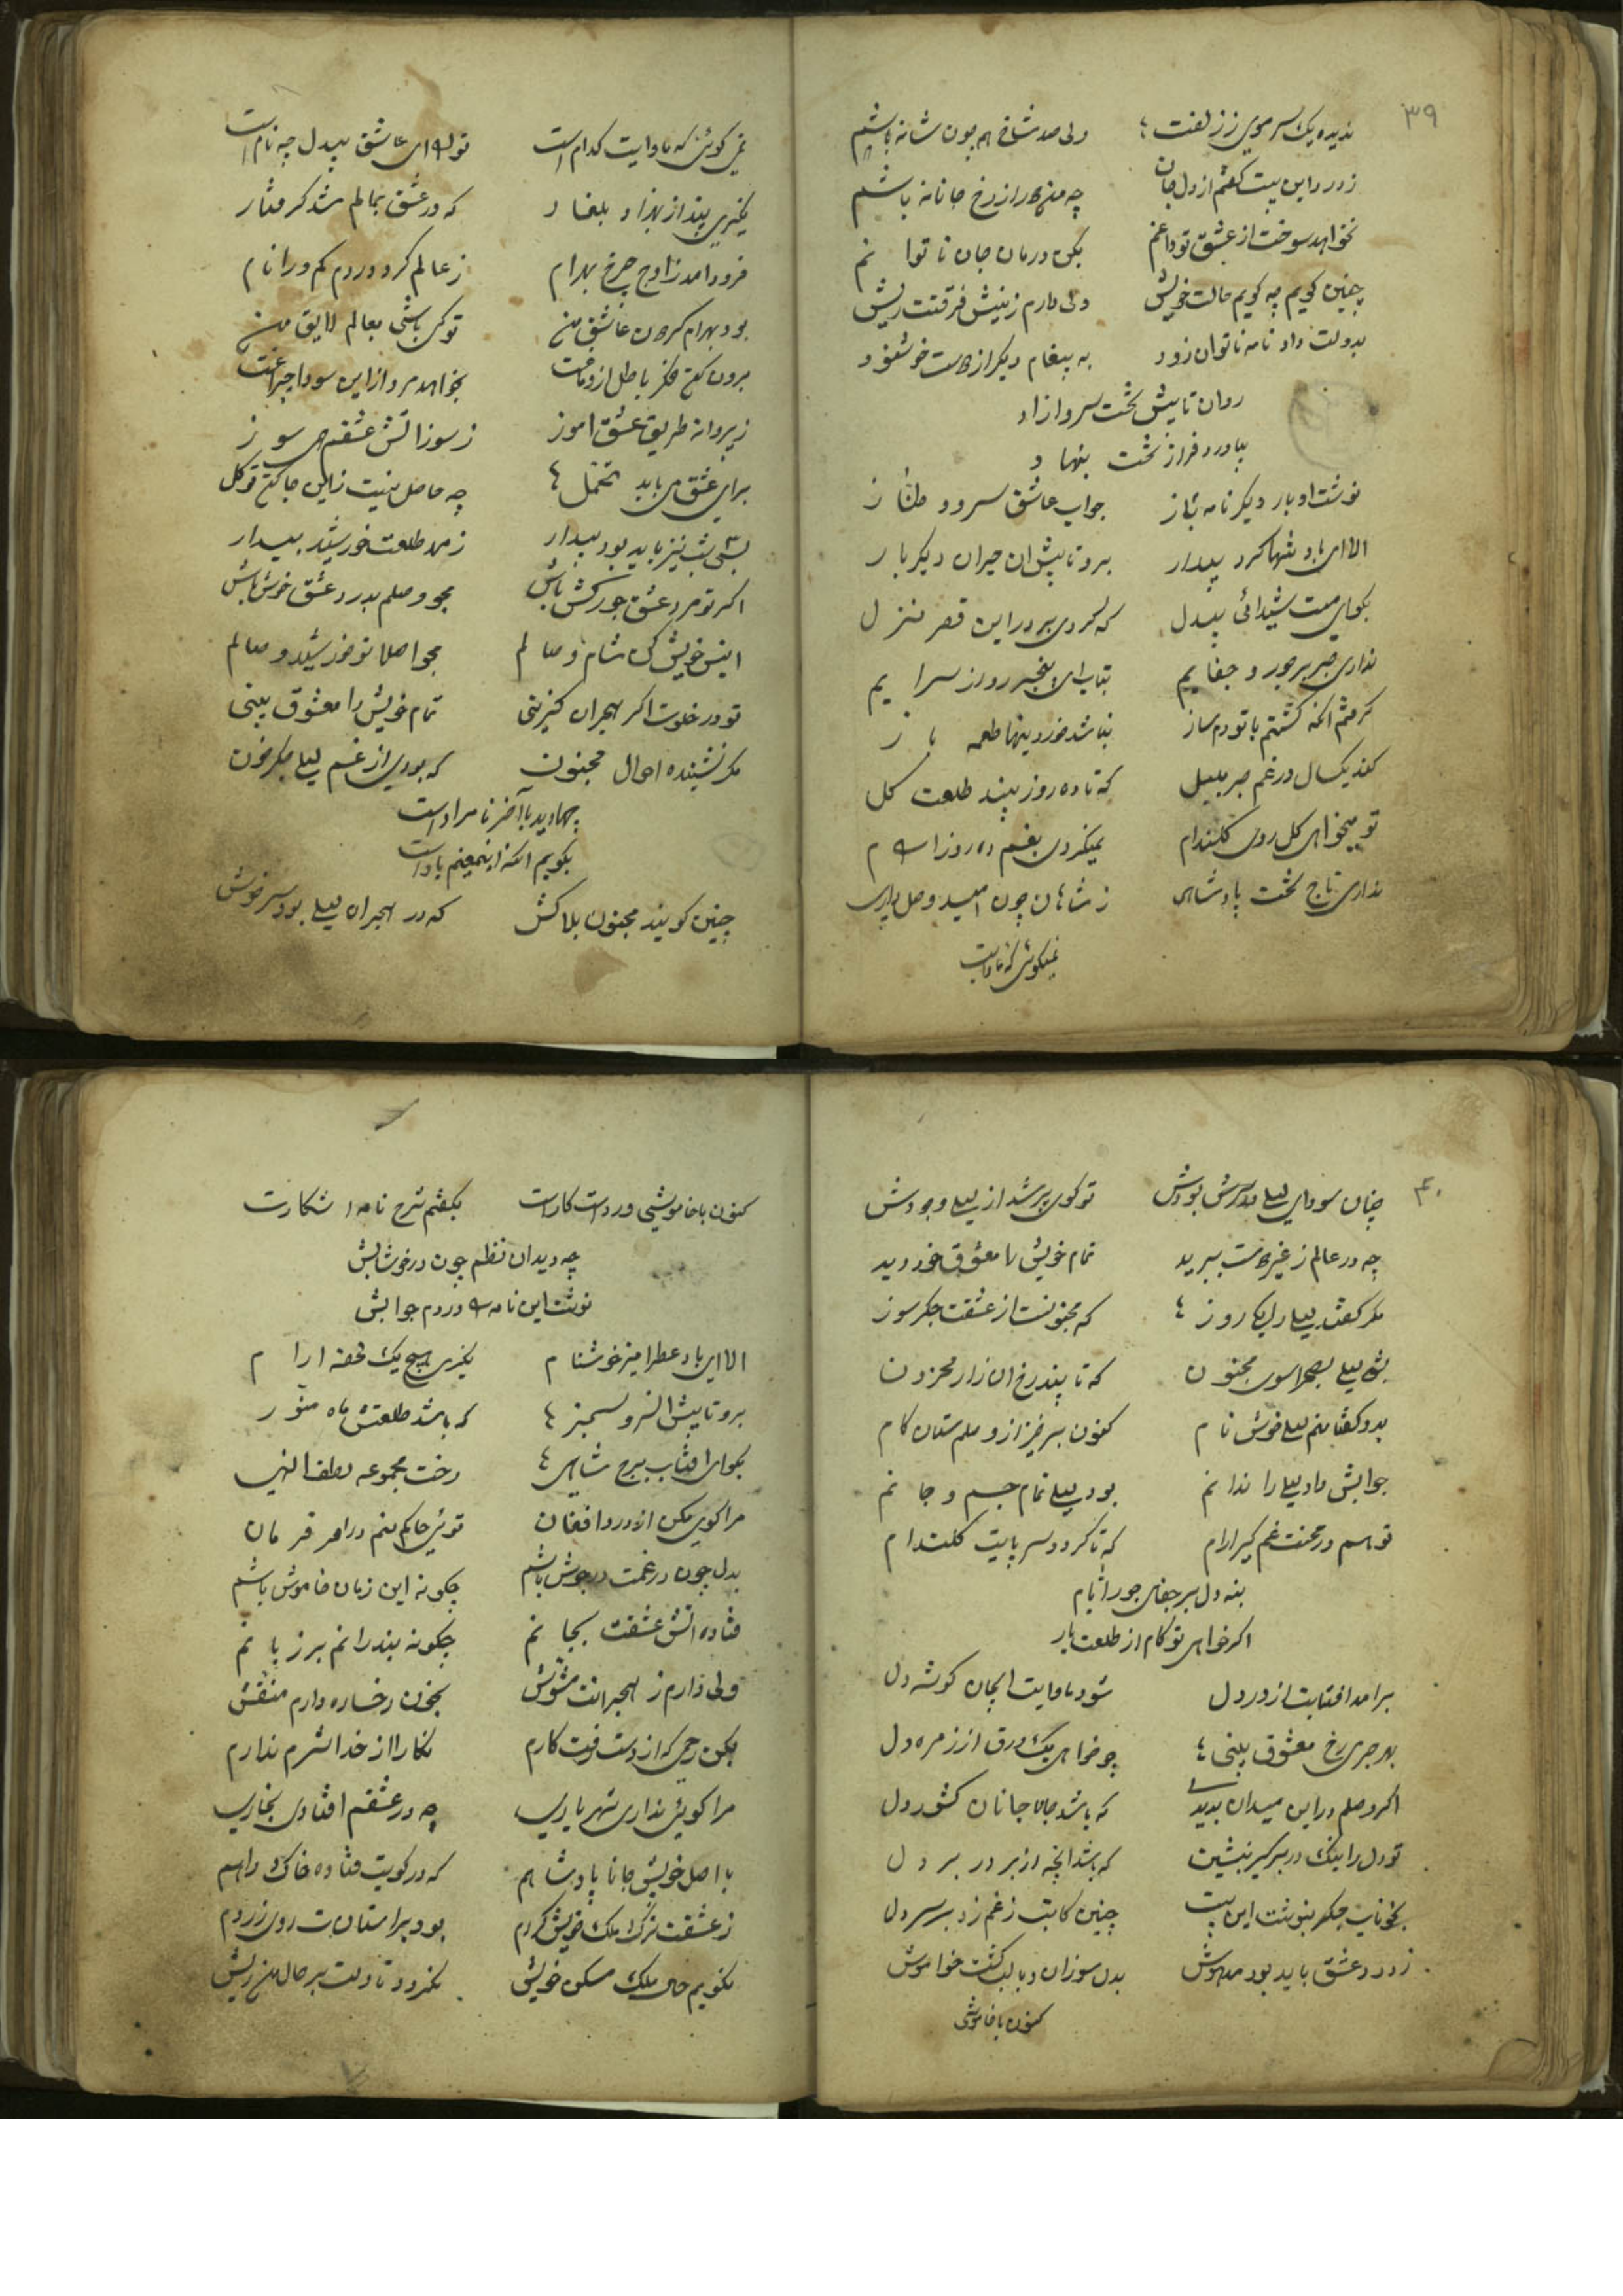 ۳۹
ندیده یک سر موی ز زلفت ولی صد شاخ هم چون شانه باشم
ز درد این بیت گفتم از دل جان چه منع از رخ جانانه باشم
نخواهد سوخت از عشق تو داغم بکن درمان جان ناتوانم
چنین گویم چه گویم حالت خویش دلی دارم ز نیش فرقتت ریش
بدولت داد نامه ناتوان زود به پیغام دیگر از دست خوشنود
روان تا پیش تخت سرو ازاد
بیاورد فراز تخت بنهاد
نوشت او بار دیگر نامه باز جواب عاشق سرود طناز
الا ای باد شبها کرد بیدار برو تا پیش ان حیران دیگر بار
بگو ای مست شیدائی بیدل که کردی بر در این قصر منزل
نداری صبر بر جور و جفایم بتاب ای بیخبر رو از سرایم
گرفتم انکه گشتم با تو دمساز نباشد خورد بنها طعمه باز
کند یکسال در غم صبر بلبل که تا ده روز بیند طلعت گل
تو میخواهی گل روی گلندام نمیگردی بغم ده روز ارام
نداری تاج تخت پادشاهی ز شاهان چون امید وصل داری
نمیگوئی که ماوایت
نمی گوئی که ماوایت کدام است تو ای عاشق بیدل چه نام است
یکی بند از بهزاد بلغاد که در عشق بمالم شد گرفتار
فرود امد ز اوج چرخ بهرام ز عالم گرد دردم کم ورا نام
بود بهرام گردون عاشق من تو کی باشی بعالم لایق من
برون کن فکر باطل از دماغت نخواهد مرد از این سودا چراغت
ز پروانه طریق عشق اموز ز سوز اتش عشقم می سوز
برای عشق می باید تحمل چه حاصل نیست زاین جا کن توکل
بسی شب نیز باید بود بیدار ز مهر طلعت خورشید بیدار
اگر تو مرد عشق جورکش باش مجو وصلم بدرد عشق خوش باش
انیس خویش کن شام وصالم مجو اصلا تو خورشید وصالم
تو در خلوت اگر هجران گزینی تمام خویش را معشوق بینی
مگر نشنیده احوال مجنون که بودی از غم لیلی جگر خون
بجاوید با آخر نامراد است
بگویم انکه اینمعنیم یاد است
چنین گویند مجنون بلاکش که در هجران لیلی بود سرخوش
۴۰
چنان سودای لیلی در سرش بودش تو گوی پر شد از لیلی وجودش
چه در عالم ز غیر دست ببرید تمام خویش را معشوق خود دید
مگر گفتند لیلی را یکی روز که مجنونست از عشقت جگر سوز
بشد لیلی بصحرا سوی مجنون که تا بیند رخ ان زار محزون
بدو گفتا منم لیلی خوش نام کنون برخیز از وصلم ستان کام
جوابش داد لیلی را ندانم بود لیلی تمام جسم و جانم
تو هم در محنت غم گیر ارام که تا گردد سرپایت گلندام
بنه دل بر جفای جور ایام
اگر خواهی تو کام از طلعت یار
برامد افتابت از در دل شود ماوایت ایجان گوشه دل
بهر جزی رخ معشوق بینی چو خواهی یک ورق از زمره دل
اگر وصلم در این میدان بدیدی که باشد جان جانان کشور دل
تو دل را نیک در بر گیر بنشین که باشد انچه از بر در بر دل
بخوناب جگر بنوشت این بیت چنین کاتب ز غم زد بر سر دل
ز درد عشق باید بود مدهوش بدل سوزان و با لب گشت خواموش
کنون با خاموشی
کنون با خاموشی ورد است کارت بگفتم شرح نامه اشکارت
چه دید ان نظم چون در خوشابش
نوشت این نامه در دم جوابش
الا ای باد عطر امیز خوشنام نگیری هیچ یک لحظه ارام
برو تا پیش ان سرو سمنبر که باشد طلعتش ماه منور
بگو ای افتاب برج شاهی رخت مجموعه لطف الهی
مرا گوی مکن از درد افغان توئی حاکم منم در امر فرمان
بدل چون در غمت در جوش باشم چگونه این زمان خاموش باشم
فتاده اتش عشقت بجانم چگونه بند رانم بر زبانم
ولی دارم ز هجرانت مشوش بخون رخساره دارم منقش
بکن رحمی که از دست رفت کارم نگارا از خدا شرم ندارم
مرا گوئی نداری شهریاری چه در عشقم افتادی بخاری
با اصل خویش جانا پادشاهم که در کویت فتاده خاک راهم
ز عشقت ترک ملک خویش کردم بود بر استانت روی زردم
نگویم حال ملک مسکن خویش نگردد تا دلت بر حال من ریش